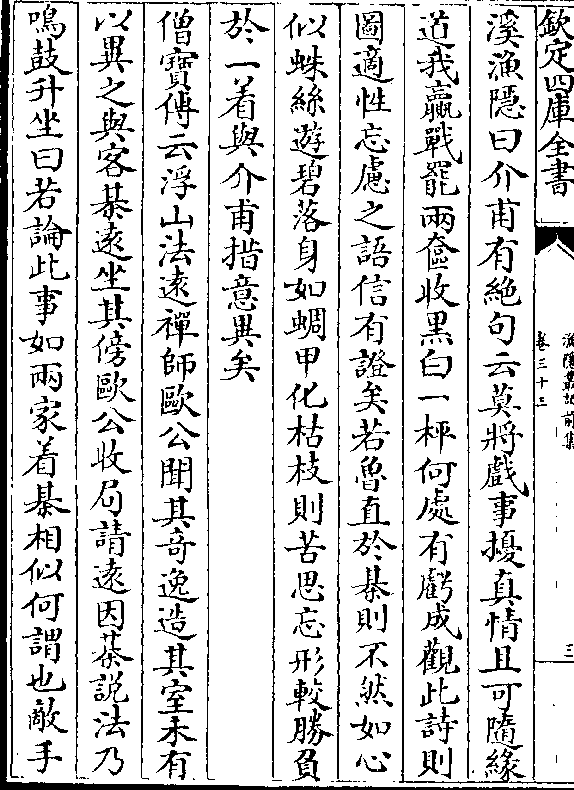 欽定四庫全書
漁隱叢話前集
卷三十三
三
溪漁隱曰介甫有絶句云莫將戲事擾真情且可隨緣
道我贏戰罷兩奩收黑白一枰何處有虧成觀此詩則
圖適性忘慮之語信有證矣若魯直於棊則不然如心
似蛛絲遊碧落身如蜩甲化枯枝則苦思忘形較勝負
於一着與介甫措意異矣
僧寶傳云浮山法逺禪師歐公聞其奇逸造其室未有
以異之與客棊逺坐其傍歐公收局請逺因棊說法乃
鳴鼓升坐曰若論此事如兩家着棊相似何謂也敵手